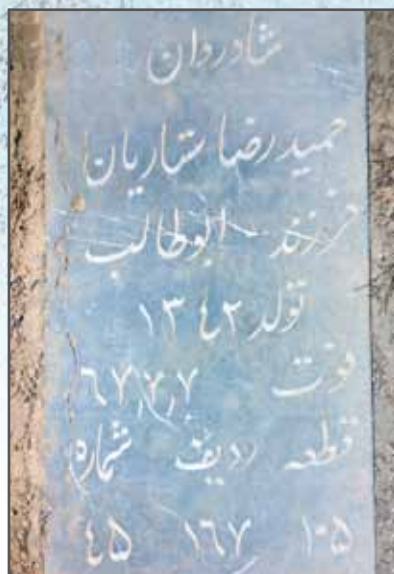 شادروان
حمیدرضا ستاریان
فرزند ابوطالب
تولد ۱۳٤۲
فوت ٦٧٫٧٫٧
قطعه ردیف شماره
۱۰۵ ۱٦٧ ٤۵